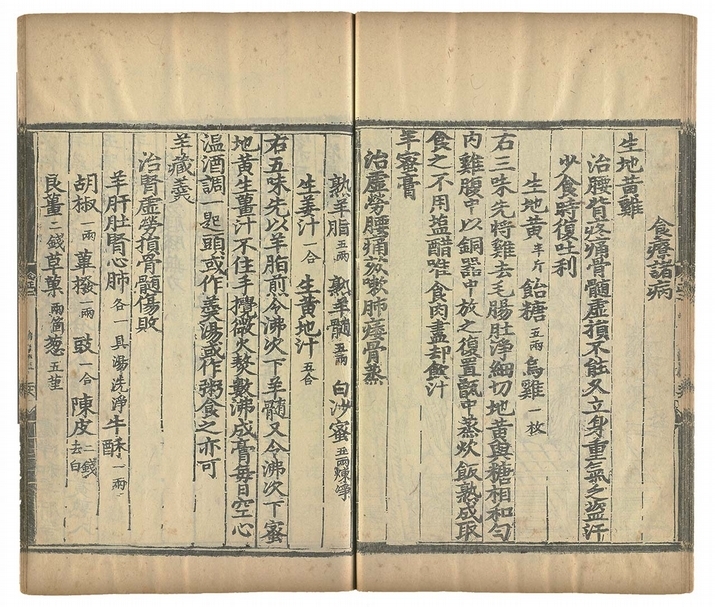 食療諸病
生地黃雞
治腰背疼痛骨髓虛損不能久立身重氣乏盜汗
少食時復吐利
生地黃半斤 飴糖五兩 烏雞一枚
右三味先將雞去毛腸肚淨細切地黃與糖相和勻
內雞腹中以銅器中放之復置甑中蒸炊飯熟成取
食之不用鹽醋唯食肉盡却飲汁
羊蜜膏
治虛勞腰痛欬嗽肺痿骨蒸
熟羊脂五兩 熟羊髓五兩 白沙蜜五兩煉淨
生姜汁一合 生黃地汁五合
右五味先以羊脂煎令沸次下羊髓又令沸次下蜜
地黃生薑汁不住手攪微火熬數沸成膏每日空心
温酒調一匙頭或作羹湯或作粥食之亦可
羊藏羹
治腎虛勞損骨髓傷敗
羊肝肚腎心肺各一具湯洗淨 牛酥一兩
胡椒一兩 蓽撥一兩 豉一合 陳皮二錢去白
良薑二錢 草菓兩箇 葱五莖